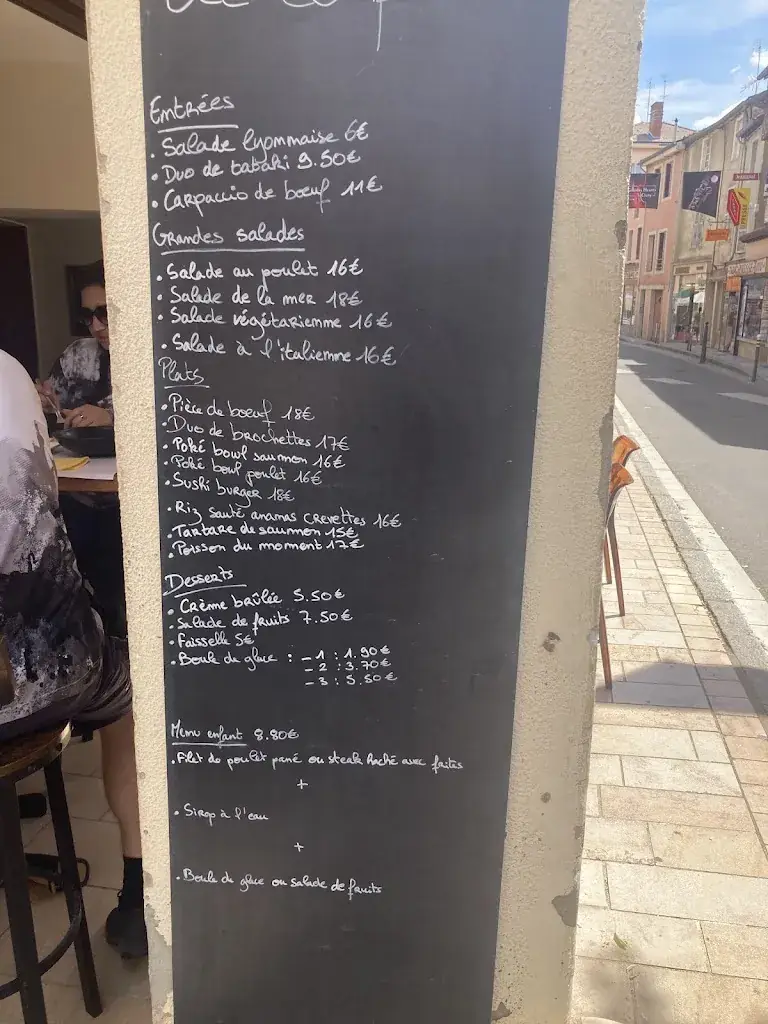 Entrées
. Salade lyonnaise 6€
. Duo de tataki 9.50€
. Carpaccio de boeuf 11€
Grandes salades
. Salade au poulet 16€
. Salade de la mer 18€
. Salade végétarienne 16€
. Salade à l'italienne 16€
Plats
. Pièce de boeuf 18€
. Duo de brochettes 17€
. Poké bowl saumon 16€
. Poké bowl poulet 16€
. Sushi burger 18€
. Riz sauté ananas crevettes 16€
. Tartare de saumon 15€
. Poisson du moment 17€
Desserts
. Crème brûlée 5.50€
. Salade de fruits 7.50€
. Faisselle 5€
. Boule de glace : - 1 : 1.90€
- 2 : 3.70€
- 3 : 5.50€
Menu enfant 8.80€
. Filet de poulet pané ou steak haché avec frites
+
. Sirop à l'eau
+
. Boule de glace ou salade de fruits